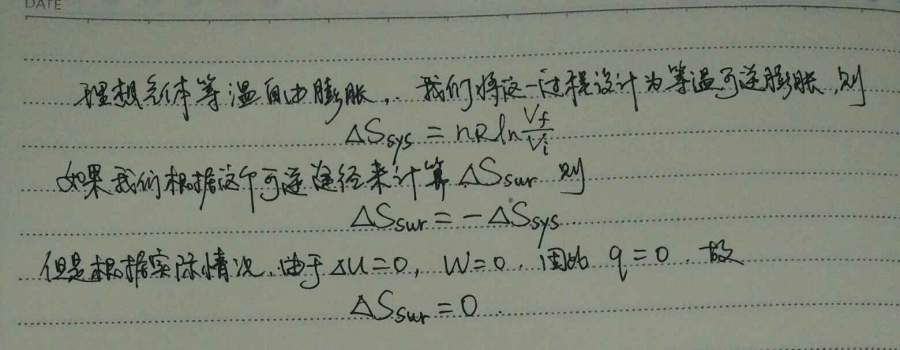 DATE
理想气体等温自由膨胀,. 我们将这一过程设计为等温可逆膨胀,则
ΔSsys = nRln Vf/Vi
如果我们根据这个可逆途径来计算 ΔSsur 则
ΔSsur = -ΔSsys
但是根据实际情况,由于 ΔU=0, W=0. 因此 q=0. 故
ΔSsur = 0.